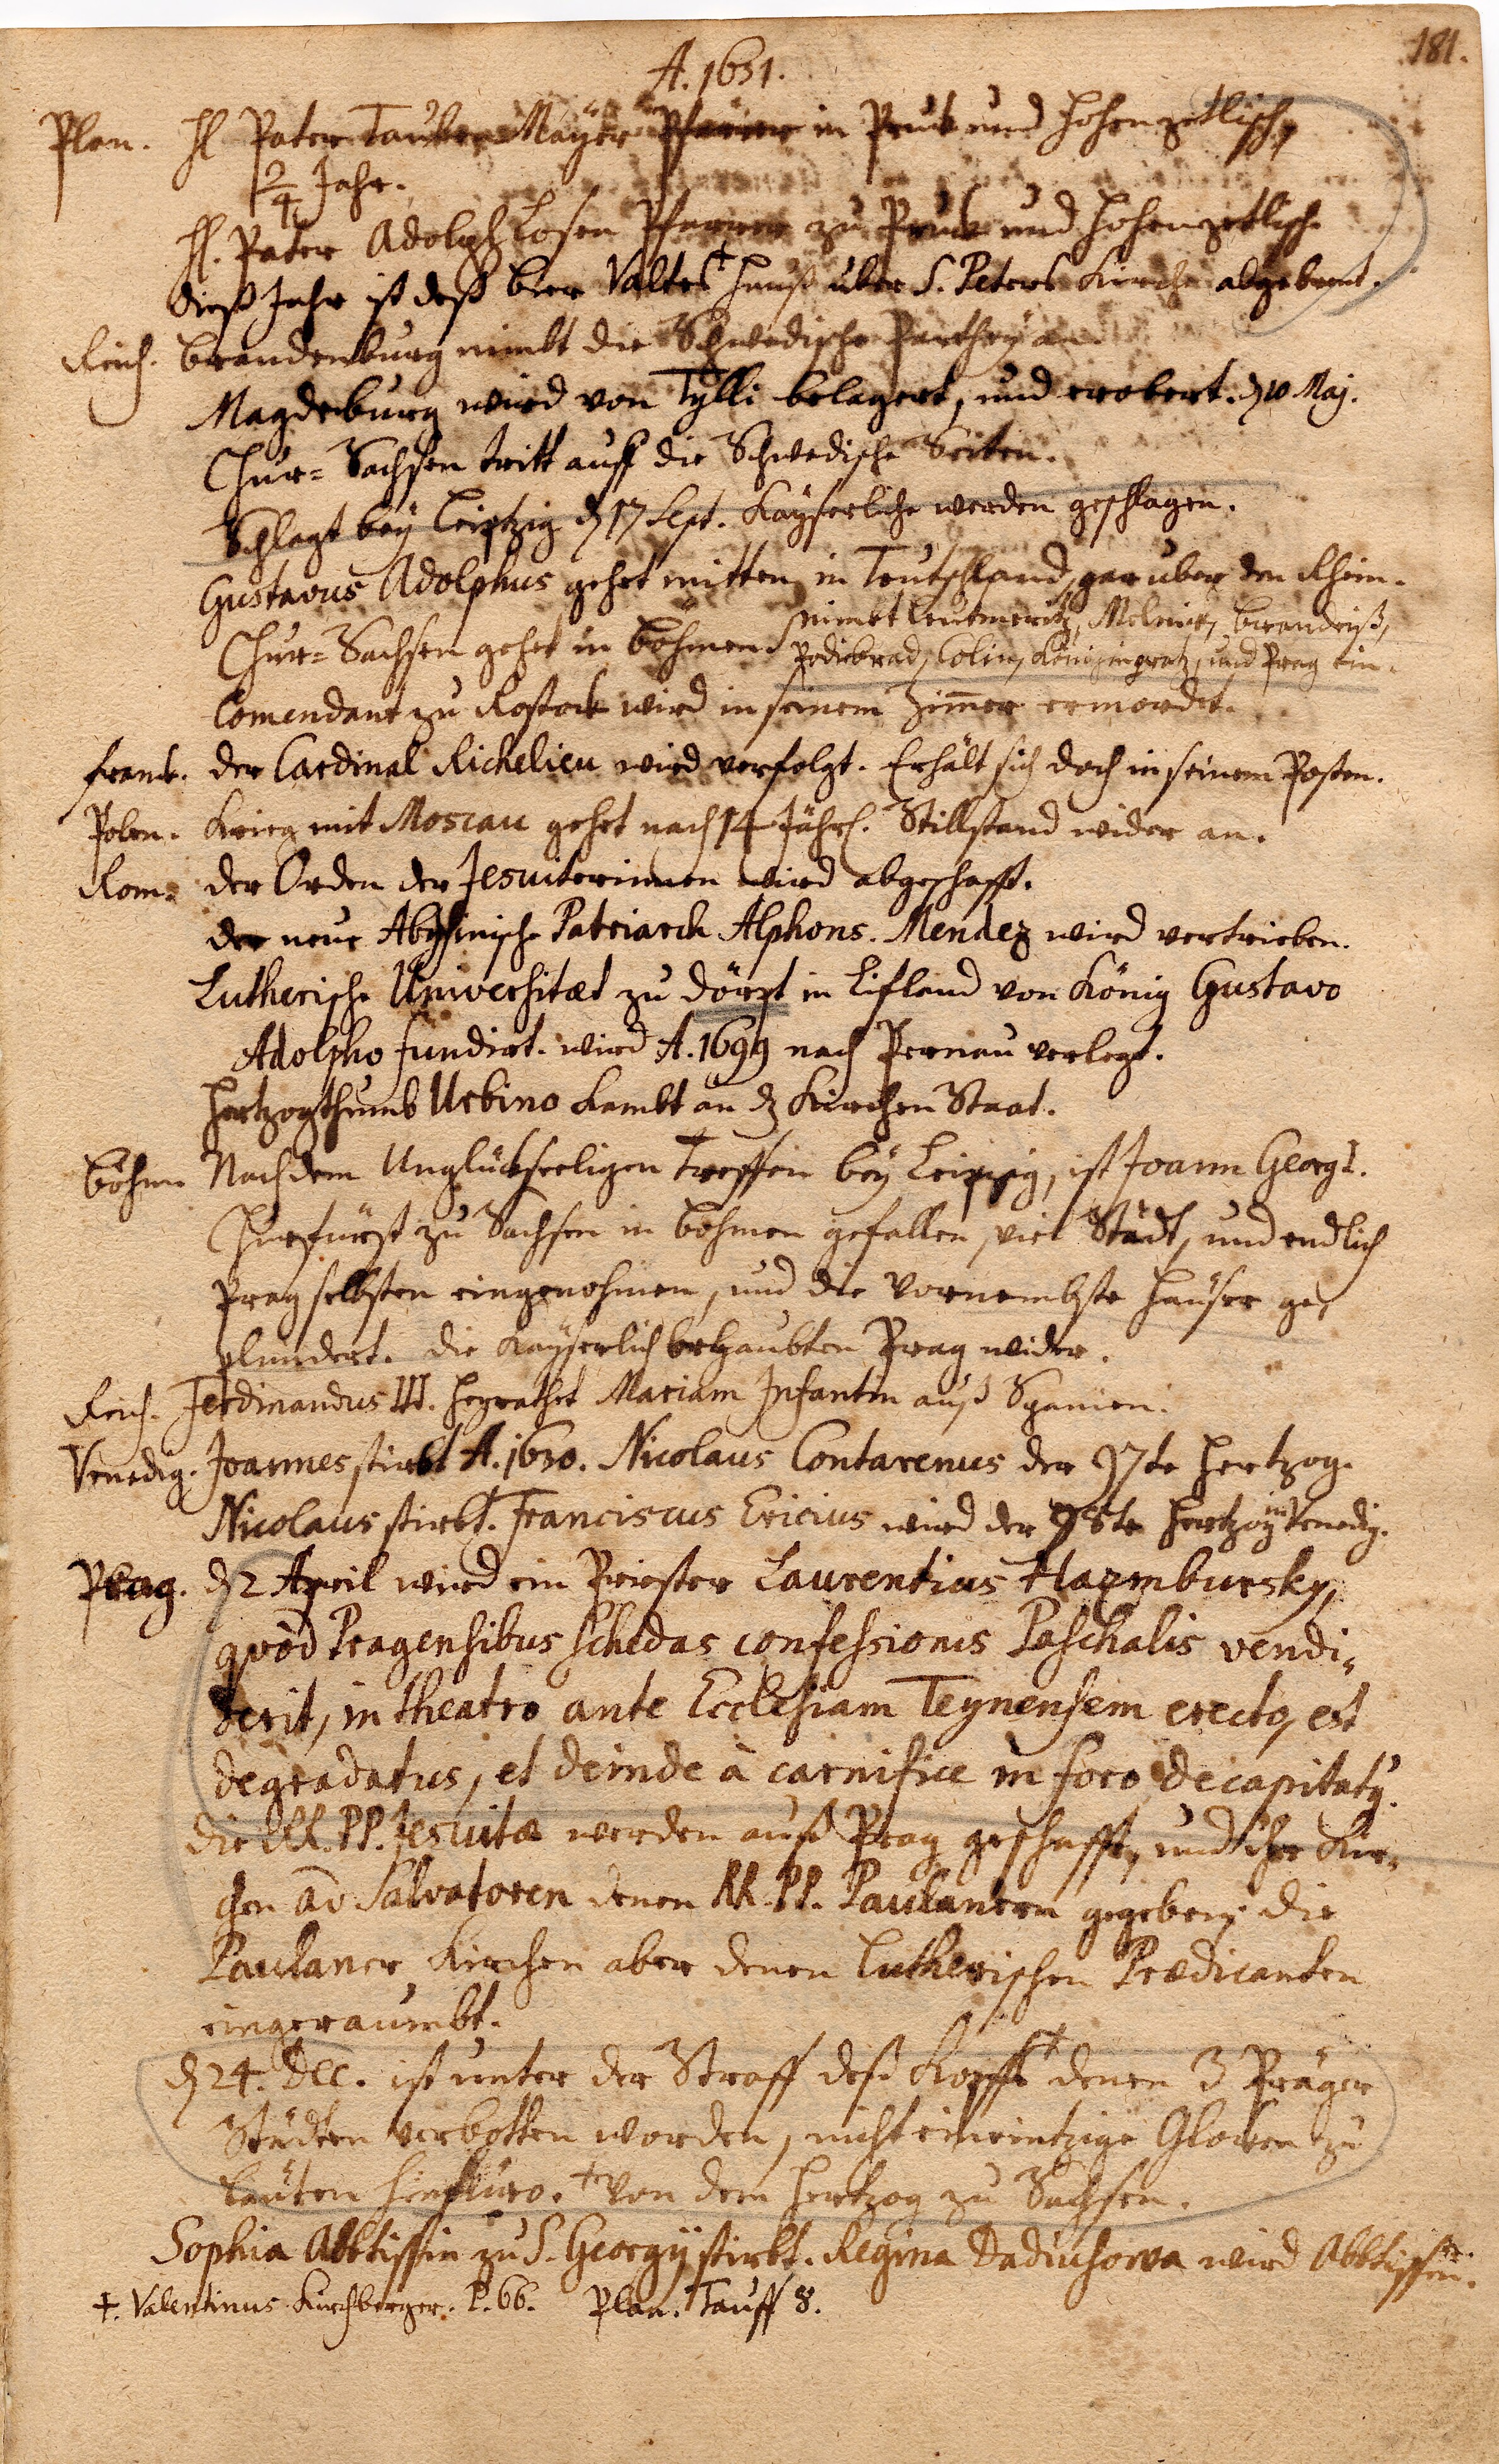 181.
A. 1631.
Plan. H. Pater Tauber Mayer Pfarrer in Pruk und Hohenzetlisch,
2/4 Jahr.
H. Pater Adolph Losen Pfarrer zu Pruk und Hohenzetlisch
diß Jahr ist deß bier Valtes † Hauß über S. Peters Kirche abgebrent.
Reich. Brandenburg nimbt die Schwedische Parthey an.
Magdeburg wird von Tylli belagert, und erobert. d 10 Maj.
Chur-Sachsen tritt auff die Schwedische Seiten.
Schlagt bey Leiptzig d 17 Sept. Kayserliche werden geschlagen.
Gustavus Adolphus gehet mitten in Teutschland, gar uber den Rhein.
Chur-Sachsen gehet in Böhmen. nimbt Leutmeritz, Melnik, Brandeiß,
Podiebrad, Colin, Königingratz, und Prag ein.
Comendant zu Rostok wird in seinem Zimer ermordet.
Frank. der Cardinal Richelieu wird verfolgt. Erhält sich doch in seinem Posten.
Polen. Krieg mit Moscau gehet nach 14 Jähr. Stillstand wider an.
Rom. der Orden der Jesuiterinnen wird abgeschafft.
der neue Abyssinische Patriarch Alphons. Mendez wird vertrieben.
Lutherische Universitæt zu Dörpt in Lifland von König Gustavo
Adolpho fundirt. wird A. 1699 nach Pernau verlegt.
Hertzogthumb Urbino kombt an d Kirchen Staat.
Böhm Nach dem Unglükseeligen Treffen bey Leipzig, ist Joann Georg I.
Churfürst zu Sachsen in Böhmen gefallen, viel Städt, und endlich
Prag selbsten eingenohmen, und die vornembste Häuser ge,
plundert. die Kayserlich behaubten Prag wider.
Reich. Ferdinandus III. heyrathet Mariam Infantin auß Spanien.
Venedig. Joannes stirbt A. 1630. Nicolaus Contarenus der 97te Hertzog.
Nicolaus stirbt. Franciscus Ericius wird der 98te Hertzog in Venedig.
Prag. d 2 April wird ein Priester Laurentius Hazmbursky,
quòd Pragensibus schedas confessionis Paschalis vendi,
derit, in theatro ante Ecclesiam Teynensem erecto, est
degradatus, et deinde à carnifice in foro decapitaty.
die RR. PP. Jesuitæ werden auß Prag geschafft, und ihr Kir,
chen ad Salvatorem denen RR. PP. Paulanern gegeben, die
Paulaner Kirchen aber denen Lutherischen Prædicanten
eingeraumbt.
d 24. Dec. ist unter der Straff deß Kopffs † denen 3 Präger
Städten verbotten worden, nicht ein eintzige Gloken zu
läuten hinfüro. † von dem Hertzog zu Sachsen.
Sophia Abbtissin zu S. Georgij stirbt. Regina Dadiuhowa wird Abbtissin.
†. Valentinus Kirchberger. P. 66. Plan. Tauff 8.